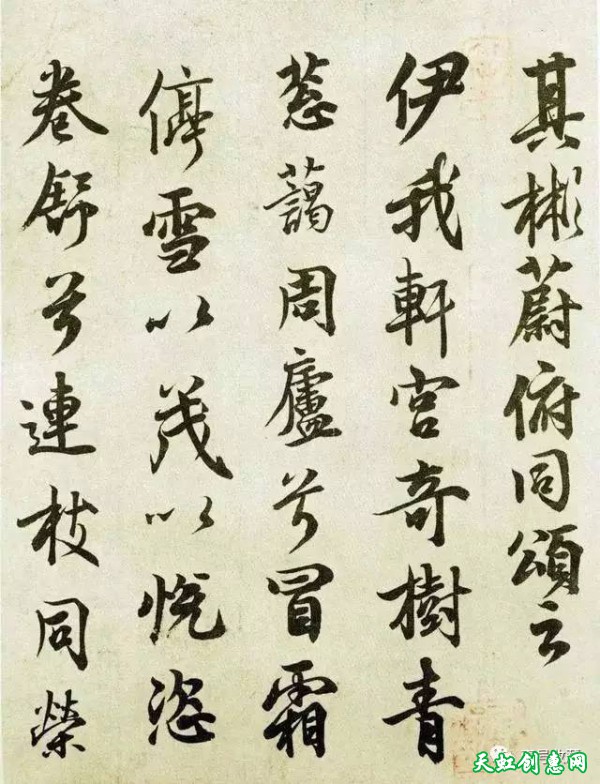 其彬蔚俯同頌云
伊我軒宮奇樹青
蔥藹周廬兮冒霜
停雪以茂以悅恣
卷舒兮連枝同榮
天虹创惠网